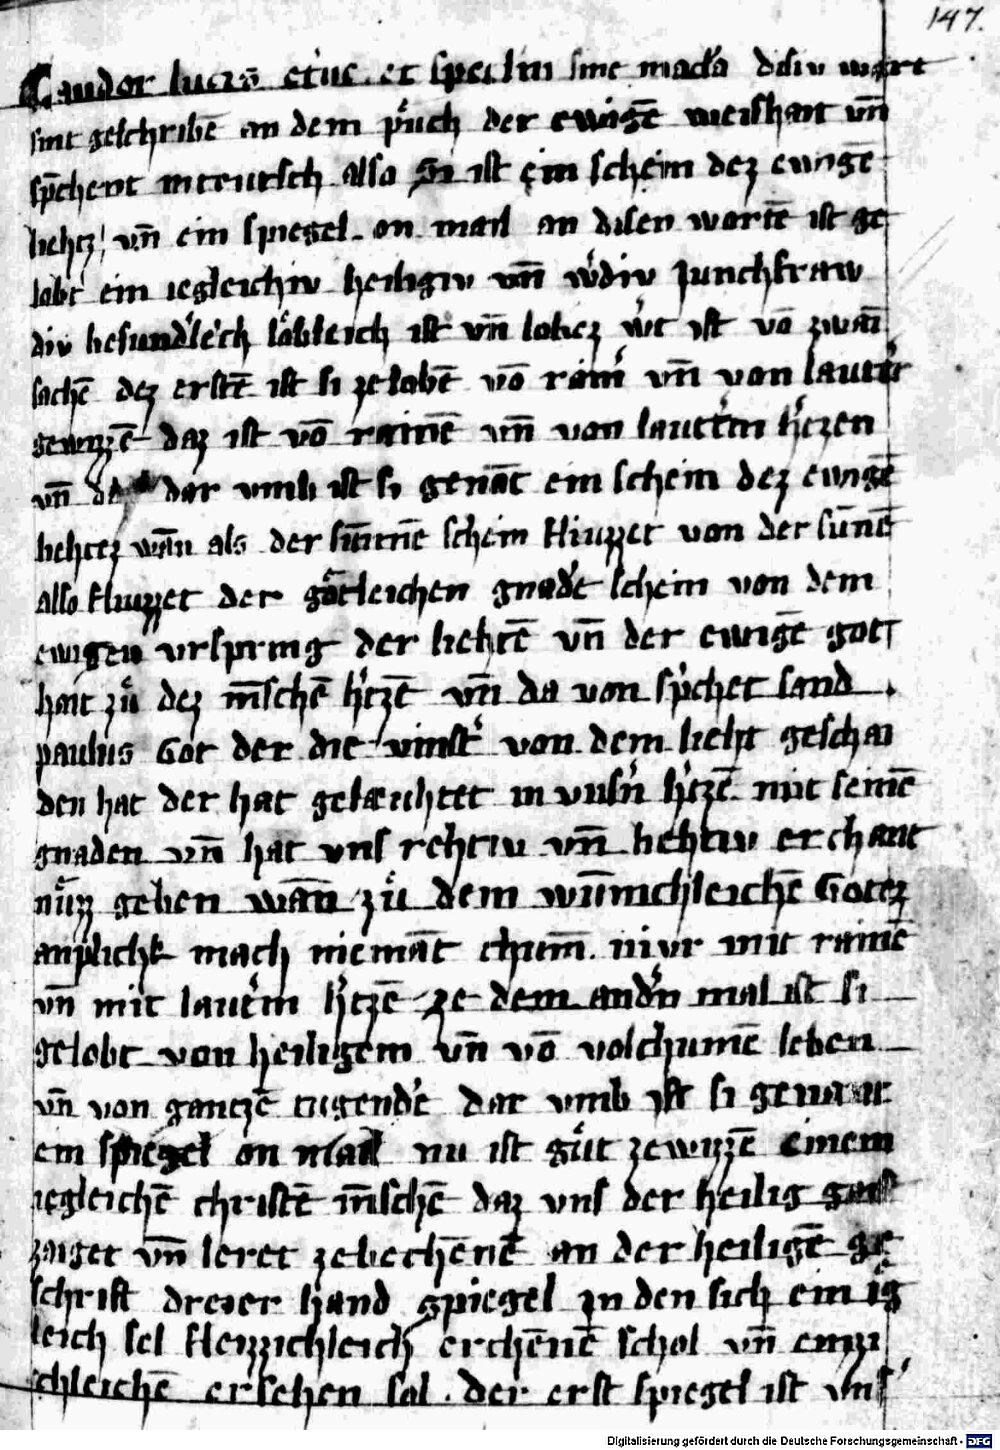 147.
Candor lucis et̄ne et specłm sine macła disiv wort
sint geschribē an dem pu̇ch der ewigē weishait vn̄
sp̄chent in teutsch also Si ist ein schein dez ewigē
liehtz vn̄ ein spiegel on mail an disen wortē ist ge
lobt ein iegleichiv heiligiv vn̄ w̓div junchfraw
div besund̓leich löbleich ist vn̄ lobez w̓t ist vō zwain̄
sachē dez erstē ist si ze lobē vō rain̓ vn̄ von laut̓r
gewizzē daz ist vō rainē vn̄ von laut̓m h̓tzen
vn̄ dar vmb ist si genāt ein schein dez ewigē
liehtez wan̄ als der sūnnē schein fliuzzet von der sūnē
also fliuzzet der götleichen gnad̓e schein von dem
ewigen vrspring der liehtē vn̄ der ewigē got
hait zů dez m̄schē h̓tzē vn̄ da von sp̓chet sand
paulus Got der die vinst̓ von dem lieht geschai
den hat der hat geläuhtet in vnsn̓ h̓tzē mit seinē
gnaden vn̄ hat vns rehtiv vn̄ liehtiv erchant
nůzz geben wan̄ zů dem wūnnichleichē Gotez
anplichk mach niemāt chum̄ nivr mit rainē
vn̄ mit laut̓m h̓tzē ze dem andn̓ mal ist si
gelobt von heiligem vn̄ vō volchumē leben
vn̄ von gantzē tugend̓e dar vmb ist si genant
ein spiegel on mail nu ist gůt ze wizzē einem
iegleichē christē m̄schē daz vns der heilig gaist
zaiget vn̄ leret ze bechēnē an der heiligē ge
schrift dreier hand spiegel in den sich ein ig
leich sel fleizzichleich erchēnē schol vn̄ emzi
chleichē ersehen sol. der erst spiegel ist vns̓
Digitalisierung gefördert durch die Deutsche Forschungsgemeinschaft - DFG